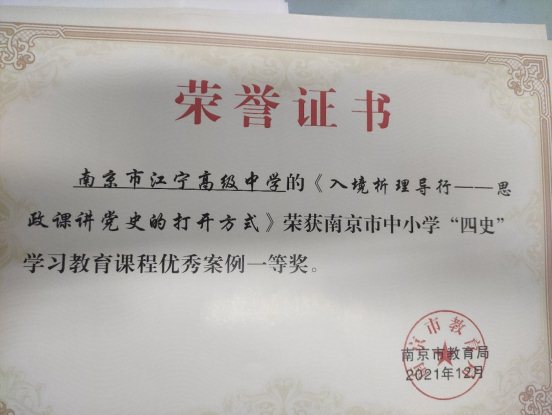 荣誉证书
南京市江宁高级中学的《入境析理导行——思
政课讲党史的打开方式》荣获南京市中小学“四史”
学习教育课程优秀案例一等奖。
南京市教育局
南京市教育局
2021年12月